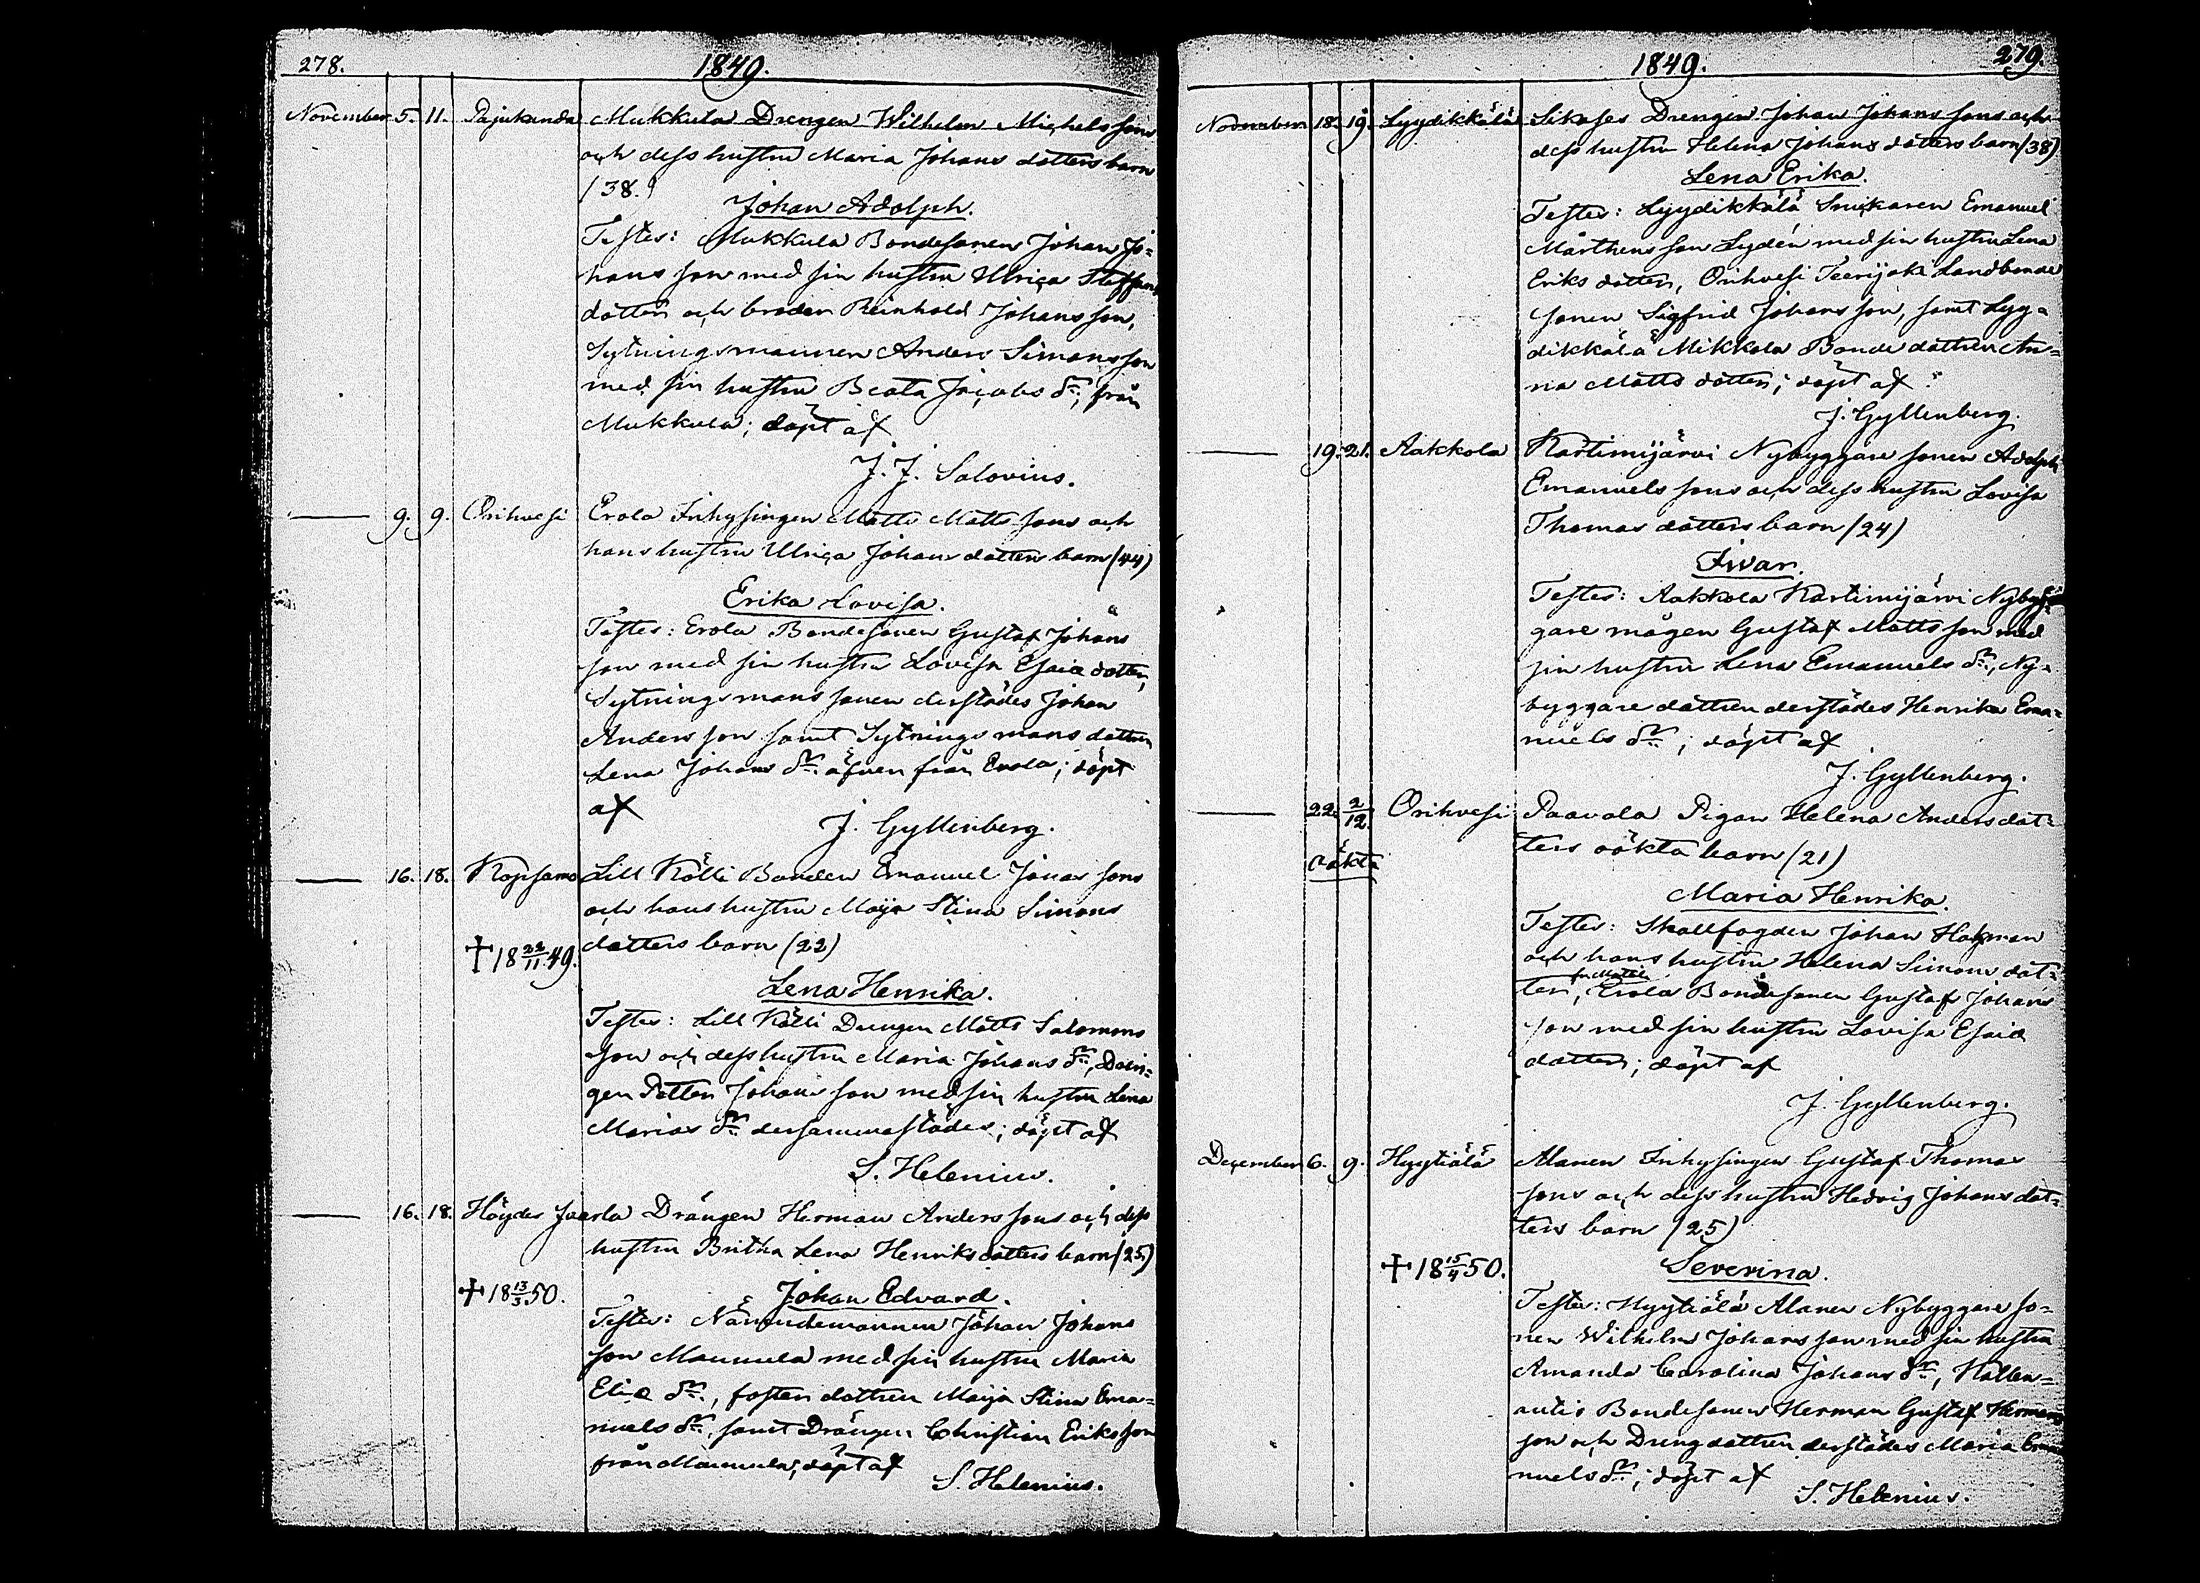 278.
1849.
November 5. 11. Pajukanda Mukkula Drengen Wilhelm Michels sons
och dess hustru Maria Johans dotters barn
(38.)
Johan Adolph.
Testes: Mukkula Bondesonen Johan Jo=
hans son med sin hustru Ulrica Staffans
dotter och broder Reinhold Johans son,
Sytningsmannen Anders Simons son
med sin hustru Beata Jacobs dr, från
Mukkula; döpt af
J. J. Salovius.
— 9. 9. Orihvesi Erola Inhysingen Matts Matts sons och
hans hustru Ulrica Johans dotters barn (44)
Erika Lovisa.
Testes: Erola Bondesonen Gustaf Johans
son med sin hustru Lovisa Esaiæ dotter,
Sytningsmans sonen derstädes Johan
Anders son samt Sytnings mans dottren
Lena Johans dr. äfven från Erola; döpt
af
J. Gyllenberg.
— 16. 18. Kopsamo Lill Kölli Bonden Emanuel Jonas sons
och hans hustru Maja Stina Simons
✝ 18 22/11 49. dotters barn (22)
Lena Henrika.
Testes: Lill Kölli Drengen Matts Salomons
son och dess hustru Maria Johans dr, Drän=
gen Petter Johans son med sin hustru Lena
Marias dr. dersammastädes; döpt af
S. Helenius.
— 16. 18. Höydes Jaarla Drängen Herman Anders sons och dess
hustru Britha Lena Henriks dotters barn (25)
✝ 18 13/3 50. Johan Edvard.
Testes: Nämndemannen Johan Johans
son Maunula med sin hustru Maria
Eliæ dr., foster dottren Maja Stina Ema=
nuels dr. samt Drängen Christian Eriks son
från Maunula; döpt af
S. Helenius.
1849.
279.
November 18. 19. Lyydikkälä Sikases Drengen Johan Johans sons och
dess hustru Helena Johans dotters barn (38)
Lena Erika.
Testes: Lyydikkälä Snickaren Emanuel
Mårthens son Lydén med sin hustru Lena
Eriks dotter, Orihvesi Teerijoki Landbonde
sonen Sigfrid Johans son, samt Lyy=
dikkälä Mikkola Bonde dottren An=
na Matts dotter; döpt af
J. Gyllenberg.
— 19. 21. Aakkola Kartimijärvi Nybyggare sonen Adolph
Emanuels sons och dess hustru Lovisa
Thomas dotters barn (24)
Iwar.
Testes: Aakkola Kartimijärvi Nybyg=
gare mågen Gustaf Matts son med
sin hustru Lena Emanuels dr., Ny=
byggare dottren derstädes Henrika Ema=
nuels dr.; döpt af
J. Gyllenberg.
— 22. 2/12. Orihvesi Paavola Pigan Helena Anders dot=
oäkta ters oäkta barn (21)
Maria Henrika.
Testes: Skallfogden Johan
och hans hustru Helena Simons dot=
ter, Erola Bondesonen Gustaf Johans
son med sin hustru Lovisa Esaiæ
dotter; döpt af
J. Gyllenberg.
December 6. 9. Hyytiälä Alanen Inhysingen Gustaf Thomas
sons och dess hustru Hedvig Johans dot=
ters barn (25)
✝ 18 15/4 50. Severina.
Testes: Hyytiälä Alanen Nybyggare so=
nen Wilhelm Johans son med sin hustru
Amanda Carolina Johans dr, Kallen=
autio Bondesonen Herman Gustaf Hermans
son och Dreng dottren derstädes Maria Ema
nuels dr.; döpt af
S. Helenius.